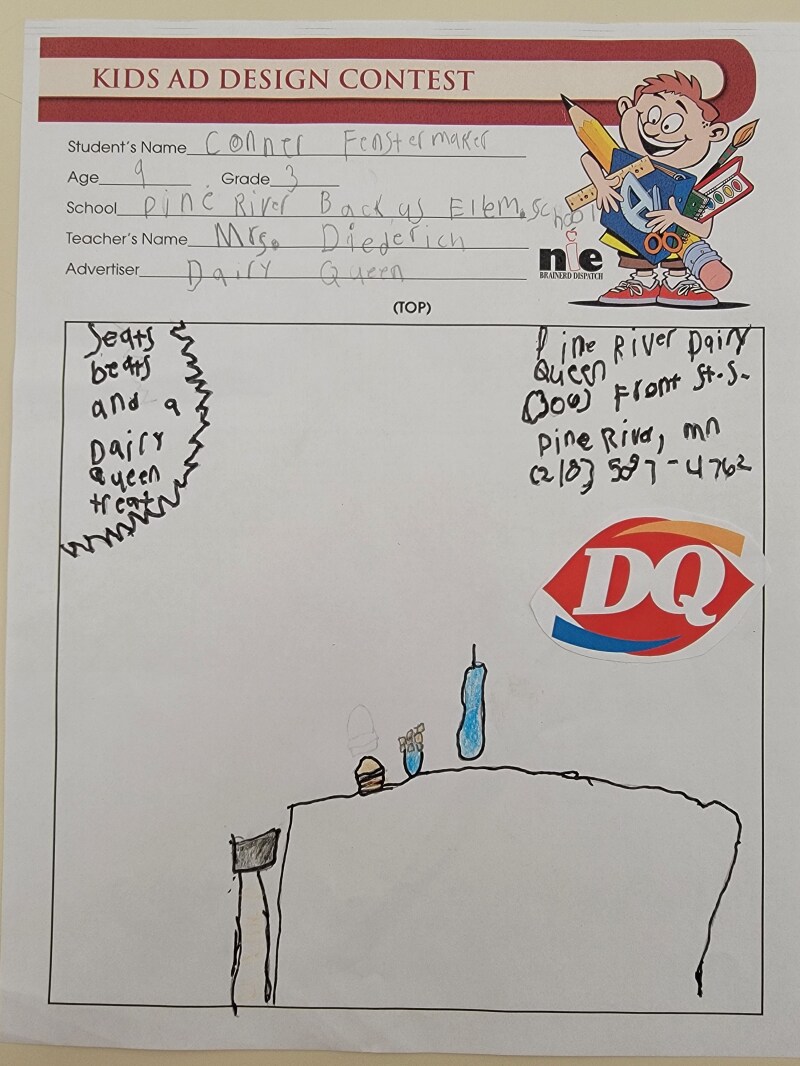 KIDS AD DESIGN CONTEST
Student's Name Conner Fenstermaker
Age 9 Grade 3
School Pine River Backus Ellem. School
Teacher's Name Mrs. Diederich
Advertiser Dairy Queen
nie
BRAINERD DISPATCH
(TOP)
Seats
beats
and a
Dairy
Queen
treat
Pine River Dairy
Queen
(300) Front St. S.
Pine River, mn
(218) 587-4762
DQ